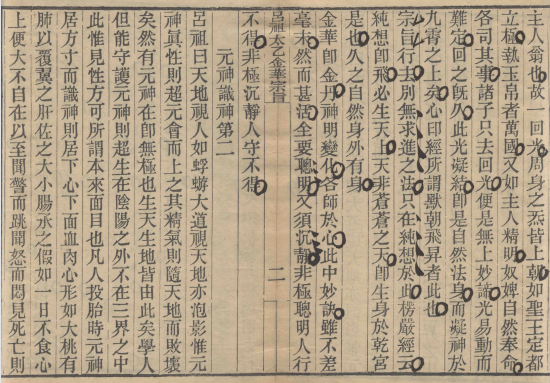 主人翁也故一回光周身之炁皆上朝如聖王定都
立極執玉帛者萬國又如主人精明奴婢自然奉命
各司其事諸子只去回光便是無上妙諦光易動而
難定回之旣久此光凝結卽是自然法身而凝神於
九霄之上矣心印經所謂默朝飛昇者此也
宗旨行去別無求進之法只在純想於此楞嚴經云
純想卽飛必生天上天非蒼蒼之天卽生身於乾宮
是也久之自然身外有身
金華卽金丹神明變化各師於心此中妙訣雖不差
毫末然而甚活全要聰明又須沉靜非極聰明人行
不得非極沉靜人守不得
元神識神第二
呂祖曰天地視人如蜉蝣大道視天地亦泡影惟元
神眞性則超元會而上之其精氣則隨天地而敗壞
矣然有元神在卽無極也生天生地皆由此矣學人
但能守護元神則超生在陰陽之外不在三界之中
此惟見性方可所謂本來面目也凡人投胎時元神
居方寸而識神則居下心下面血肉心形如大桃有
肺以覆翼之肝佐之大小腸承之假如一日不食心
上便大不自在以至聞驚而跳聞怒而悶見死亡則
呂祖太乙金華宗旨
二